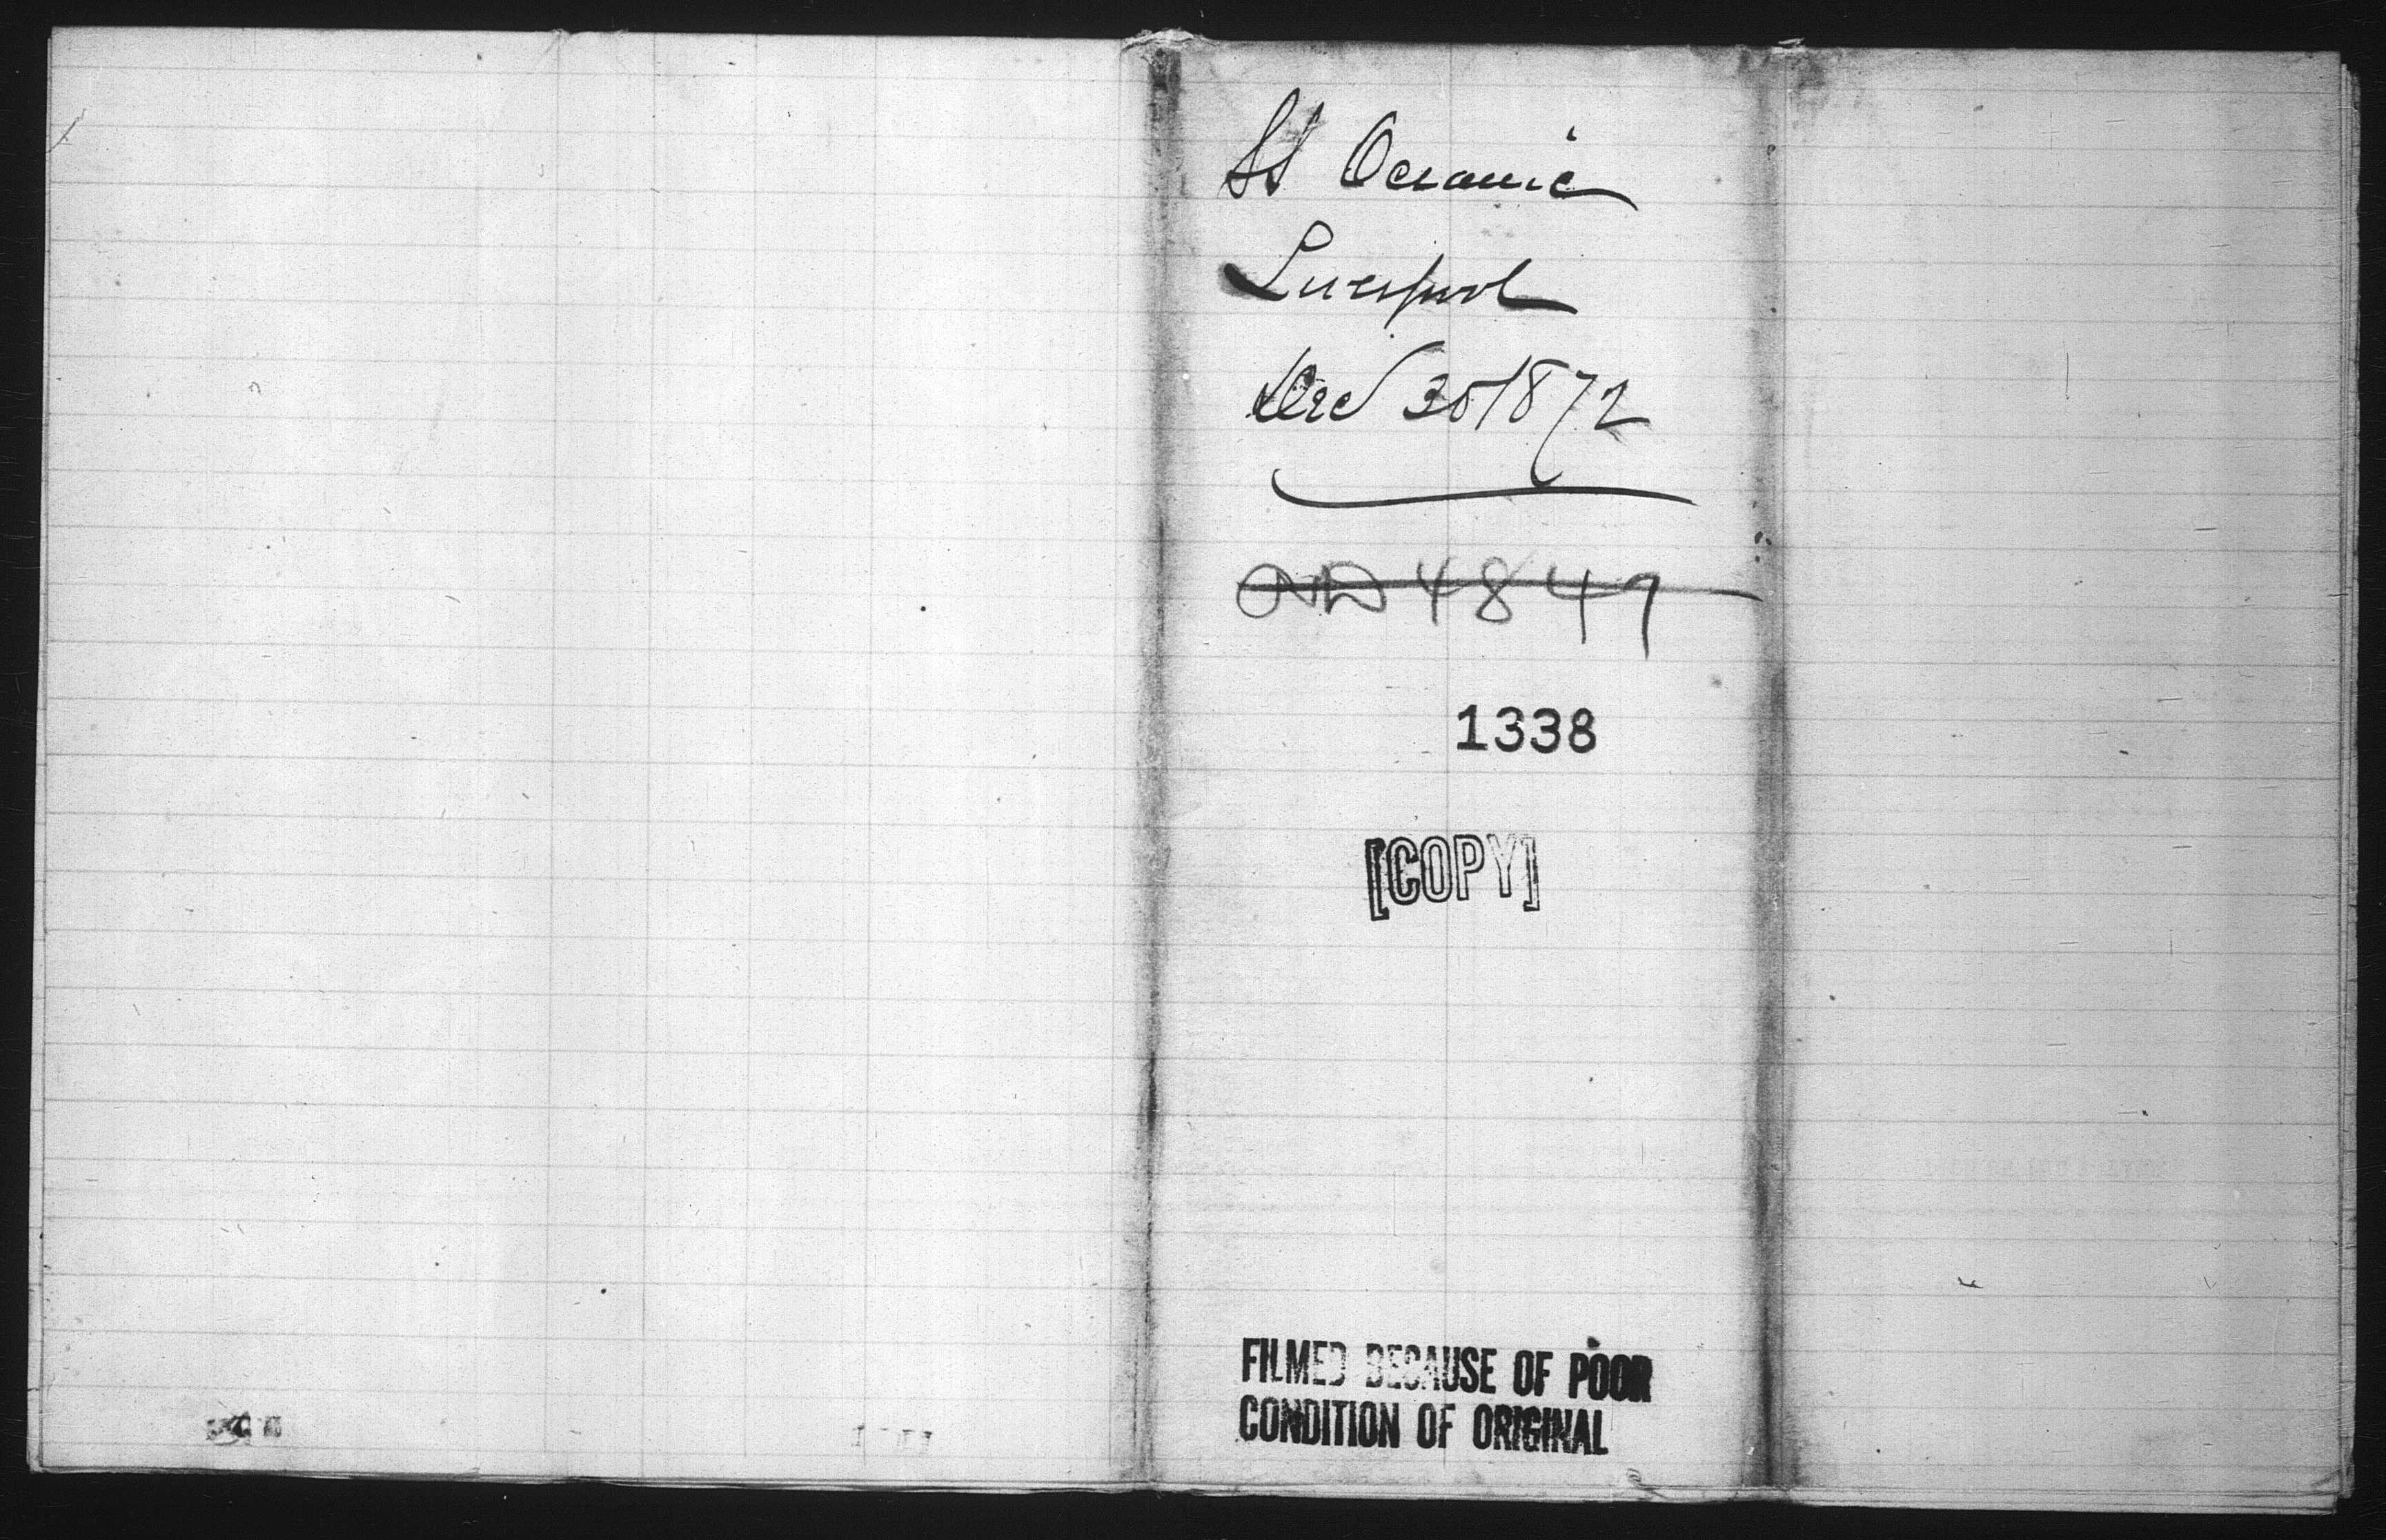 SS Oceanic
Liverpool
Dec 30 1872
4847
1338
[COPY]
FILMED BECAUSE OF POOR
CONDITION OF ORIGINAL